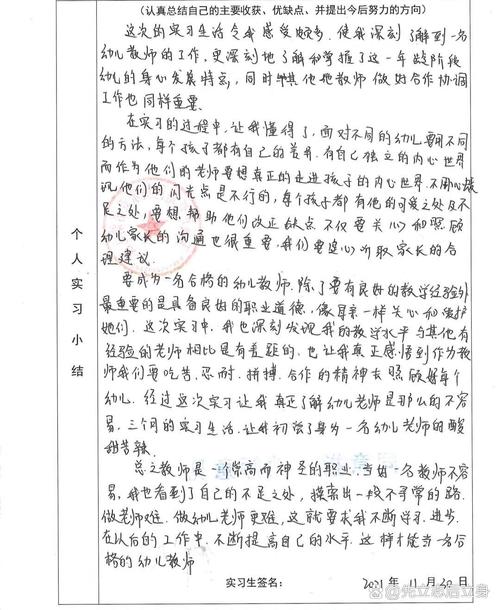 （认真总结自己的主要收获、优缺点、并提出今后努力的方向）
这次的实习生活令我感受颇多，使我深刻了解到一名
幼儿教师的工作，更深刻地了解和掌握了这一年龄阶段
幼儿的身心发展特点，同时与其他她教师做好合作协调
工作也同样重要。
在实习的过程中，让我懂得了，面对不同的幼儿要用不同
的方法，每个孩子都有自己的差异，有自己独立的内心世界
而作为他们的老师要想真正的走进孩子的内心世界，不用心发
现他们的闪光点是不行的，每个孩子都有他的可爱之处及不
足之处，要想帮助他们改正缺点不仅要关心和照顾
幼儿家长的沟通也很重要，我们要虚心听取家长的合
理建议。
要成为一名合格的幼儿教师，除了要有良好的教学经验外
最重要的是具备良好的职业道德，像母亲一样关心和爱护
她们，这次实习中，我也深刻发现我的教学水平与其他有
经验的老师相比是有差距的，也让我真正感悟到作为教
师我们要吃苦、忍耐、拼搏、合作的精神去照顾好每个
幼儿，经过这次实习让我真正了解幼儿老师是那么的不容
易，三个月的实习生活，让我初尝了身为一名幼儿老师的酸
甜苦辣。
总之教师是一个崇高而神圣的职业，当好一名教师不容
易，我也看到了自己的不足之处，摸索出一段不寻常的路，
做老师难，做幼儿老师更难，这就要求我不断学习，进步，
在以后的工作中，不断提高自己的水平，这样才能当一名合
格的幼儿教师
个人实习小结
实习生签名： 2021年 11月 30日
先立志后立身